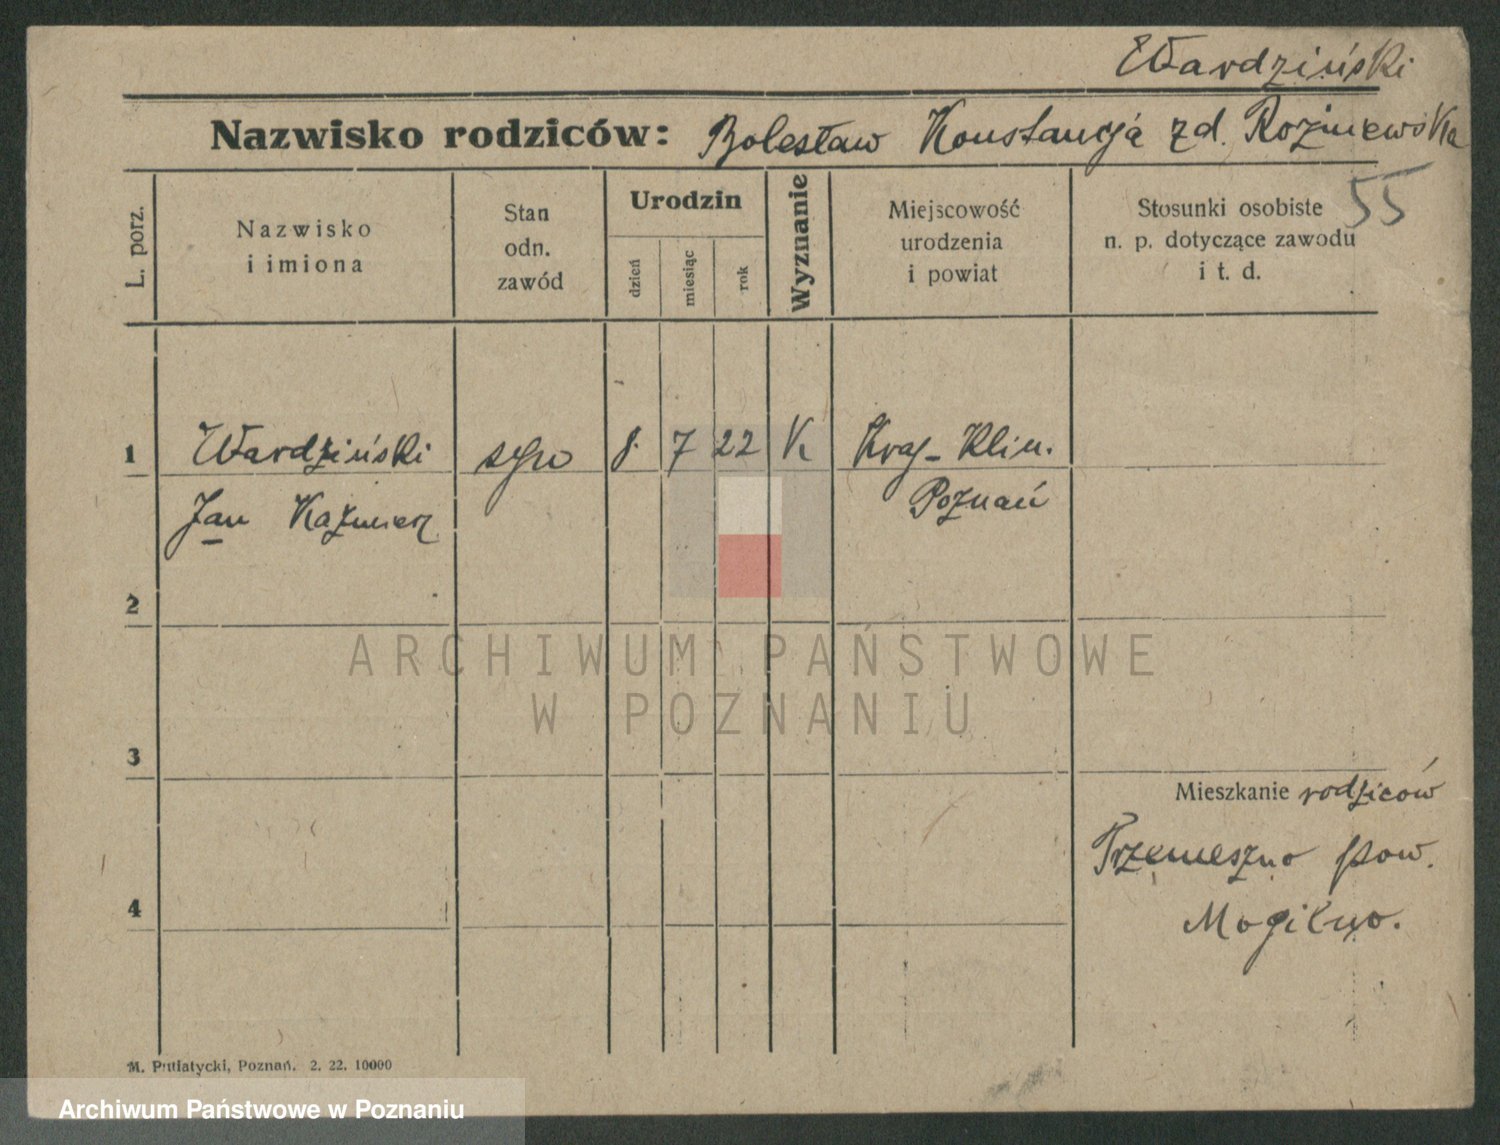 Wardziński
Nazwisko rodziców: Bolesław Konstancja zd. Rozmiewska
55
L. porz.
Nazwisko
i imiona
Stan
odn.
zawód
Urodzin
dzień
miesiąc
rok
Wyznanie
Miejscowość
urodzenia
i powiat
Stosunki osobiste
n. p. dotyczące zawodu
i t. d.
1 Wardziński syn 8. 7 22 K Kraj. Klin.
Jan Kaźmierz Poznań
2
ARCHIWUM PAŃSTWOWE
W POZNANIU
3
Mieszkanie rodziców
Trzemeszno pow.
4
Mogilno.
M. Putiatycki, Poznań. 2. 22. 10000
Archiwum Państwowe w Poznaniu